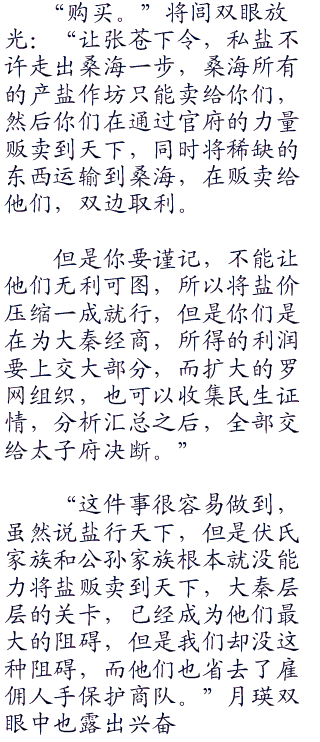 “购买。”将闾双眼放
光：“让张苍下令，私盐不
许走出桑海一步，桑海所有
的产盐作坊只能卖给你们，
然后你们在通过官府的力量
贩卖到天下，同时将稀缺的
东西运输到桑海，在贩卖给
他们，双边取利。
但是你要谨记，不能让
他们无利可图，所以将盐价
压缩一成就行，但是你们是
在为大秦经商，所得的利润
要上交大部分，而扩大的罗
网组织，也可以收集民生证
情，分析汇总之后，全部交
给太子府决断。”
“这件事很容易做到，
虽然说盐行天下，但是伏氏
家族和公孙家族根本就没能
力将盐贩卖到天下，大秦层
层的关卡，已经成为他们最
大的阻碍，但是我们却没这
种阻碍，而他们也省去了雇
佣人手保护商队。”月瑛双
眼中也露出兴奋